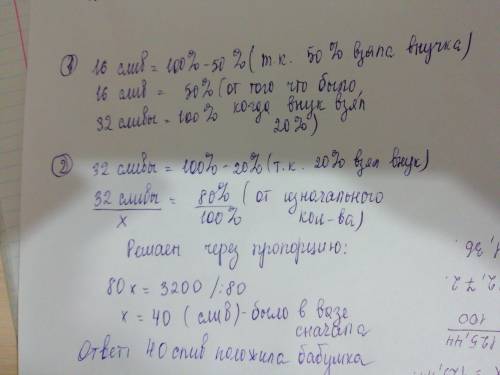 ① 16 слив = 100% - 50% (т.к. 50% взяла внучка)
16 слив = 50% (от того что было,
32 сливы = 100% когда внук взял
20%)
② 32 сливы = 100% - 20% (т.к. 20% взял внук)
32 сливы / x = 80% / 100% (от изначального
кол-ва)
Решаем через пропорцию:
80x = 3200 /:80
x = 40 (слив) - было в вазе
сначала
Ответ: 40 слив положила бабушка
1,36.
2,72.
125,44
100